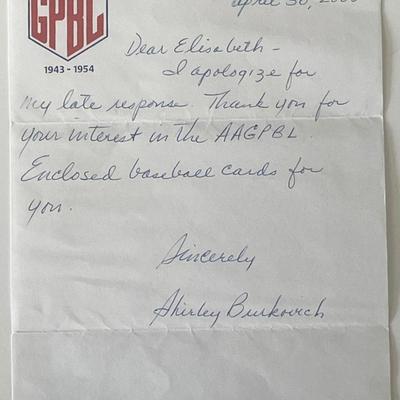 GPBL
1943 - 1954
april 30,
Dear Elisabeth -
I apologize for
my late response. Thank you for
your interest in the AAGPBL.
Enclosed baseball cards for
you.
Sincerely
Shirley Burkovich